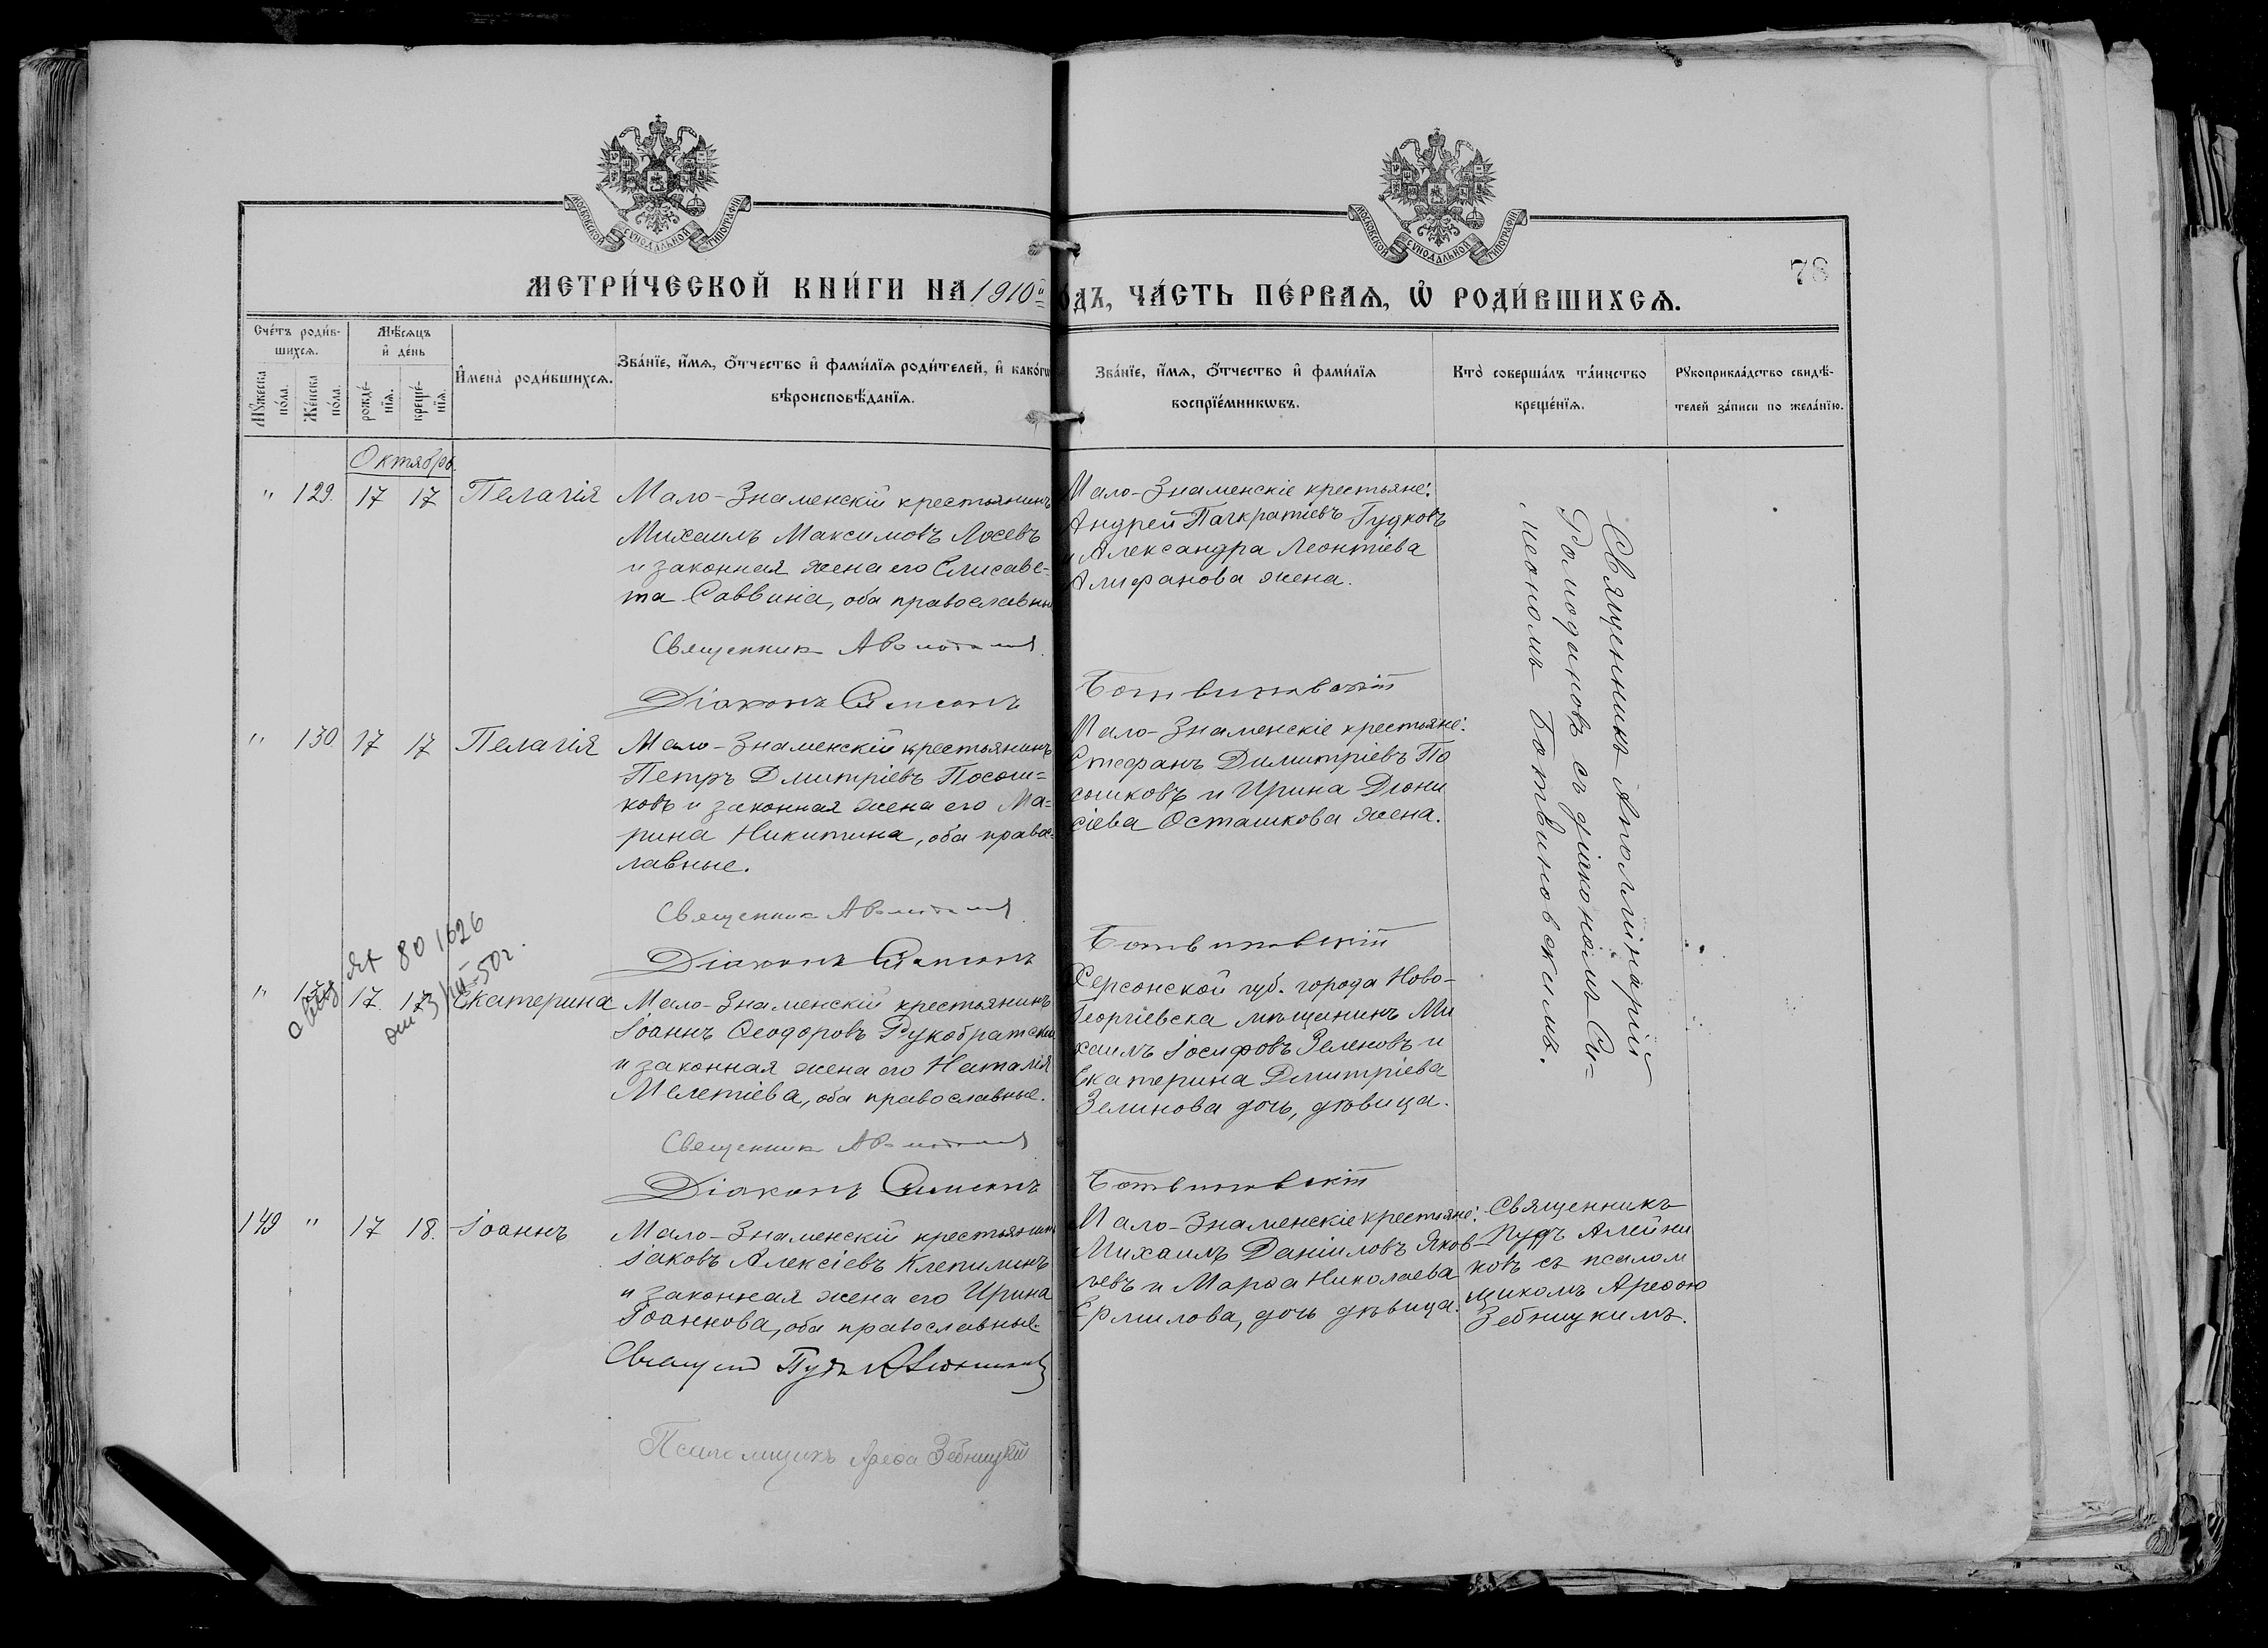 МОСКОВСКОЙ СѴНОДАЛЬНОЙ ТИПОГРАФІИ
МОСКОВСКОЙ СѴНОДАЛЬНОЙ ТИПОГРАФІИ
78
МЕТРИ́ЧЕСКОЙ КНИ́ГИ НА 1910й
ОДЪ, ЧА́СТЬ ПЕ́РВАѦ, Ѡ҆ РОДИ́ВШИХСѦ.
Сче́тъ роди́в-
шихсѧ.
Мꙋ́жеска по́ла.
Же́нска по́ла.
Мѣ́сѧцъ
и҆ де́нь
рожде́-нїѧ.
креще́-нїѧ.
И҆мена̀ роди́вшихсѧ.
Зва́нїе, и҆́мѧ, ѻ҆́тчество и҆ фами́лїѧ роди́телей, и҆ како́гѡ
вѣроисповѣ́данїѧ.
Зва́нїе, и҆́мѧ, ѻ҆́тчество и҆ фами́лїѧ
воспрїе́мникѡвъ.
Кто̀ соверша́лъ та́инство
креще́нїѧ.
Рꙋкоприкла́дство свидѣ́-
телей за́писи по жела́нїю.
Октябрь.
" 129. 17 17 Пелагія
Мало-Знаменскій крестьянинъ
Михаилъ Максимовъ Лосевъ
и законная жена его Елисаве-
та Саввина, оба православные
Священник
Діаконъ Симеонъ
Мало-Знаменскіе крестьяне:
Андрей Панкратіевъ Гудковъ
и Александра Леонтіева
Алифанова жена.
Ботвиновскій
Священникъ Аполлинарій
Ромодановъ съ діакономъ Си-
меономъ Ботвиновскимъ.
" 130. 17 17 Пелагія
Мало-Знаменскій крестьянинъ
Петръ Дмитріевъ Посош=
ковъ и законная жена его Ма=
рина Никитина, оба правос-
лавные.
Священник
Діаконъ Симеонъ
Мало-Знаменскіе крестьяне:
Стефанъ Димитріевъ По
сошковъ и Ирина Діони
сіева Осташкова жена.
Ботвиновскій
80 1626
50г.
" 17. 17 Екатерина
Мало-Знаменскій крестьянинъ
Іоаннъ Ѳеодоровъ Рукобратскій
и законная жена его Наталія
Мелетіева, оба православные.
Священник
Діаконъ Симеонъ
Херсонской губ. города Ново-
Георгіевска мѣщанинъ Ми
хаилъ Іосифовъ Зеленовъ и
Екатерина Дмитріева
Зелинова дочь, дѣвица.
Ботвиновскій
149 " 17 18. Іоаннъ
Мало-Знаменскій крестьянинъ
Іаковъ Алексіевъ Клепилинъ
и законная жена его Ирина
Іоаннова, оба православные.
Пудъ Алейниковъ
Псаломщикъ Ареѳа Зебницкій
Мало-Знаменскіе крестьяне:
Михаилъ Даніиловъ Яков-
левъ и Марѳа Николаева
Ермилова, дочь дѣвица.
Священникъ
Пудъ Алейни
ковъ съ псалом
щикомъ Ареѳою
Зебницкимъ.